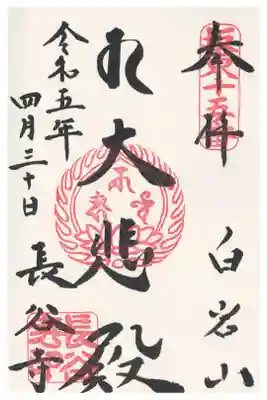 奉拝
白岩山
大悲殿
長谷寺
令和五年
四月三十日